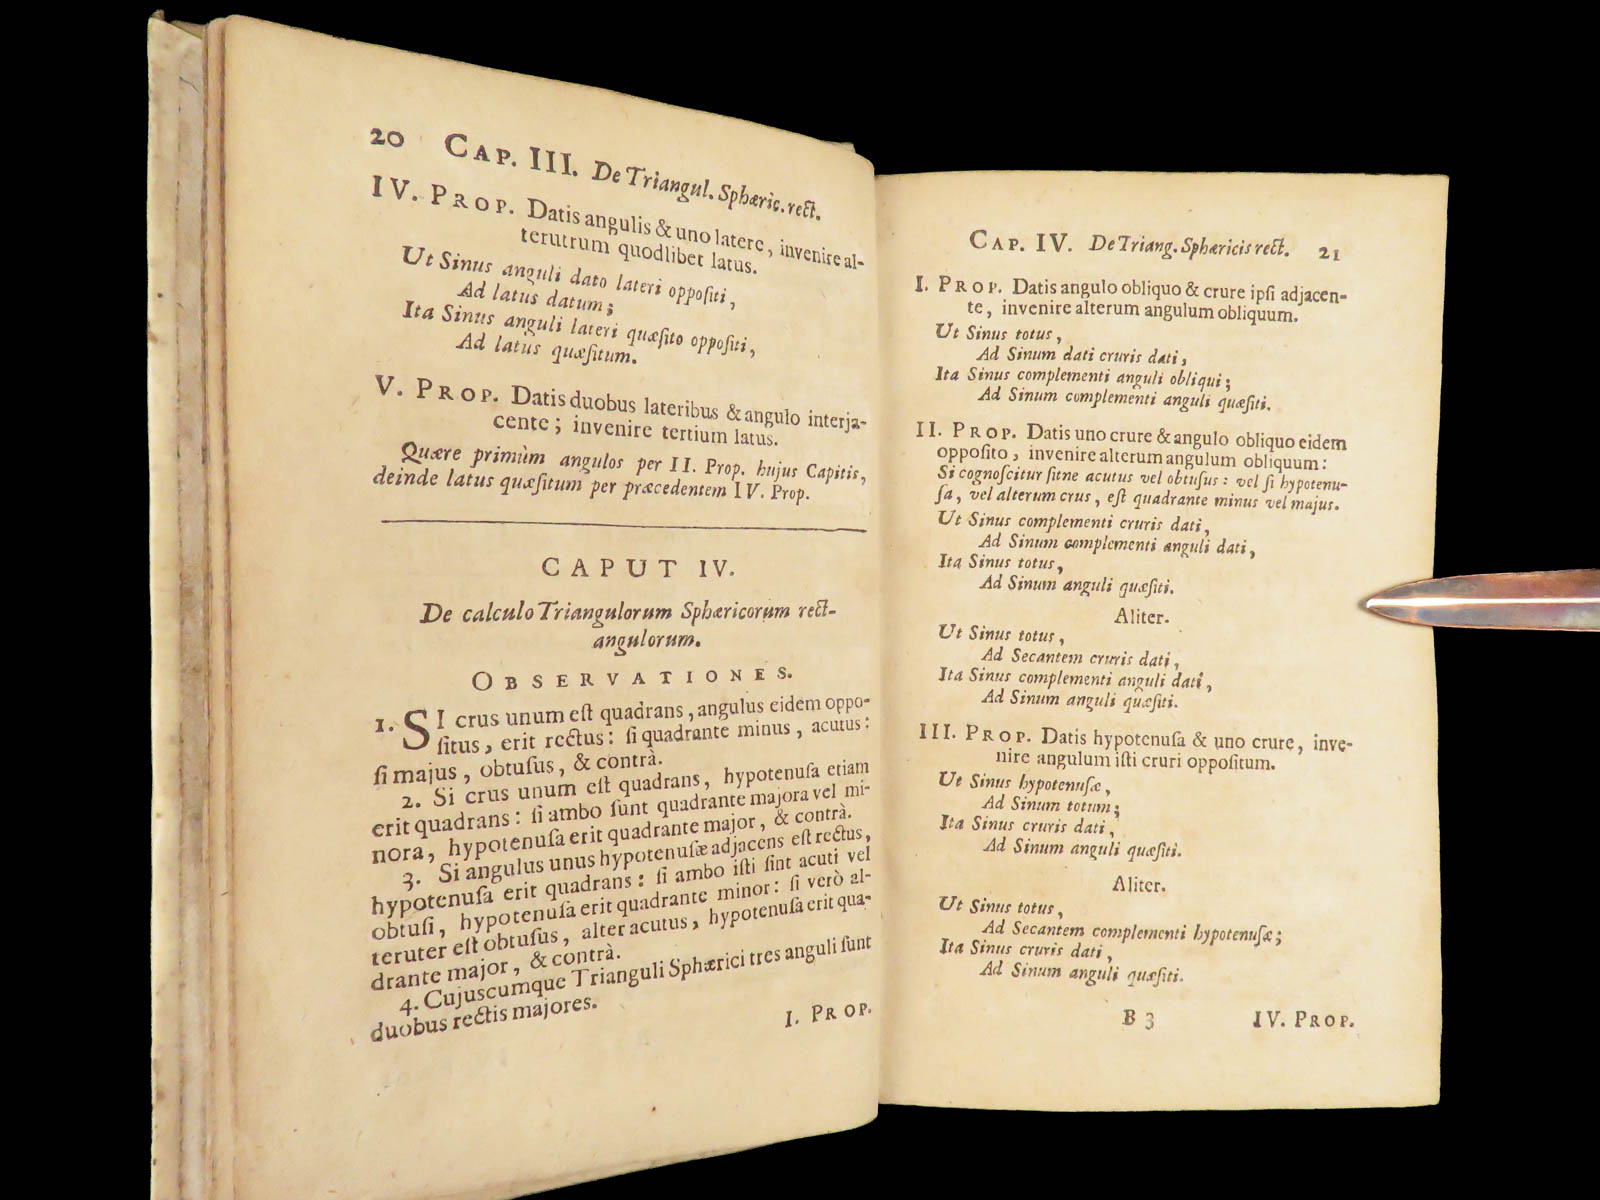 20 CAP. III. De Triangul. Sphæric. rect.
IV. PROP. Datis angulis & uno latere, invenire al-
terutrum quodlibet latus.
Ut Sinus anguli dato lateri oppoſiti,
Ad latus datum;
Ita Sinus anguli lateri quæſito oppoſiti,
Ad latus quæſitum.
V. PROP. Datis duobus lateribus & angulo interja-
cente; invenire tertium latus.
Quære primùm angulos per II. Prop. hujus Capitis,
deinde latus quæſitum per præcedentem IV. Prop.
CAPUT IV.
De calculo Triangulorum Sphæricorum rect-
angulorum.
OBSERVATIONES.
1. SI crus unum eſt quadrans, angulus eidem oppo-
ſitus, erit rectus: ſi quadrante minus, acutus:
ſi majus, obtuſus, & contrà.
2. Si crus unum eſt quadrans, hypotenuſa etiam
erit quadrans: ſi ambo ſunt quadrante majora vel mi-
nora, hypotenuſa erit quadrante major, & contrà.
3. Si angulus unus hypotenuſæ adjacens eſt rectus,
hypotenuſa erit quadrans: ſi ambo iſti ſint acuti vel
obtuſi, hypotenuſa erit quadrante minor: ſi verò al-
teruter eſt obtuſus, alter acutus, hypotenuſa erit qua-
drante major, & contrà.
4. Cujuscumque Trianguli Sphærici tres anguli ſunt
duobus rectis majores.
I. PROP.
CAP. IV. De Triang. Sphæricis rect. 21
I. PROP. Datis angulo obliquo & crure ipſi adjacen-
te, invenire alterum angulum obliquum.
Ut Sinus totus,
Ad Sinum dati cruris dati,
Ita Sinus complementi anguli obliqui;
Ad Sinum complementi anguli quæſiti.
II. PROP. Datis uno crure & angulo obliquo eidem
oppoſito, invenire alterum angulum obliquum:
Si cognoſcitur ſitne acutus vel obtuſus: vel ſi hypotenu-
ſa, vel alterum crus, eſt quadrante minus vel majus.
Ut Sinus complementi cruris dati,
Ad Sinum complementi anguli dati,
Ita Sinus totus,
Ad Sinum anguli quæſiti.
Aliter.
Ut Sinus totus,
Ad Secantem cruris dati,
Ita Sinus complementi anguli dati,
Ad Sinum anguli quæſiti.
III. PROP. Datis hypotenuſa & uno crure, inve-
nire angulum iſti cruri oppoſitum.
Ut Sinus hypotenuſæ,
Ad Sinum totum;
Ita Sinus cruris dati,
Ad Sinum anguli quæſiti.
Aliter.
Ut Sinus totus,
Ad Secantem complementi hypotenuſæ;
Ita Sinus cruris dati,
Ad Sinum anguli quæſiti.
B 3 IV. PROP.